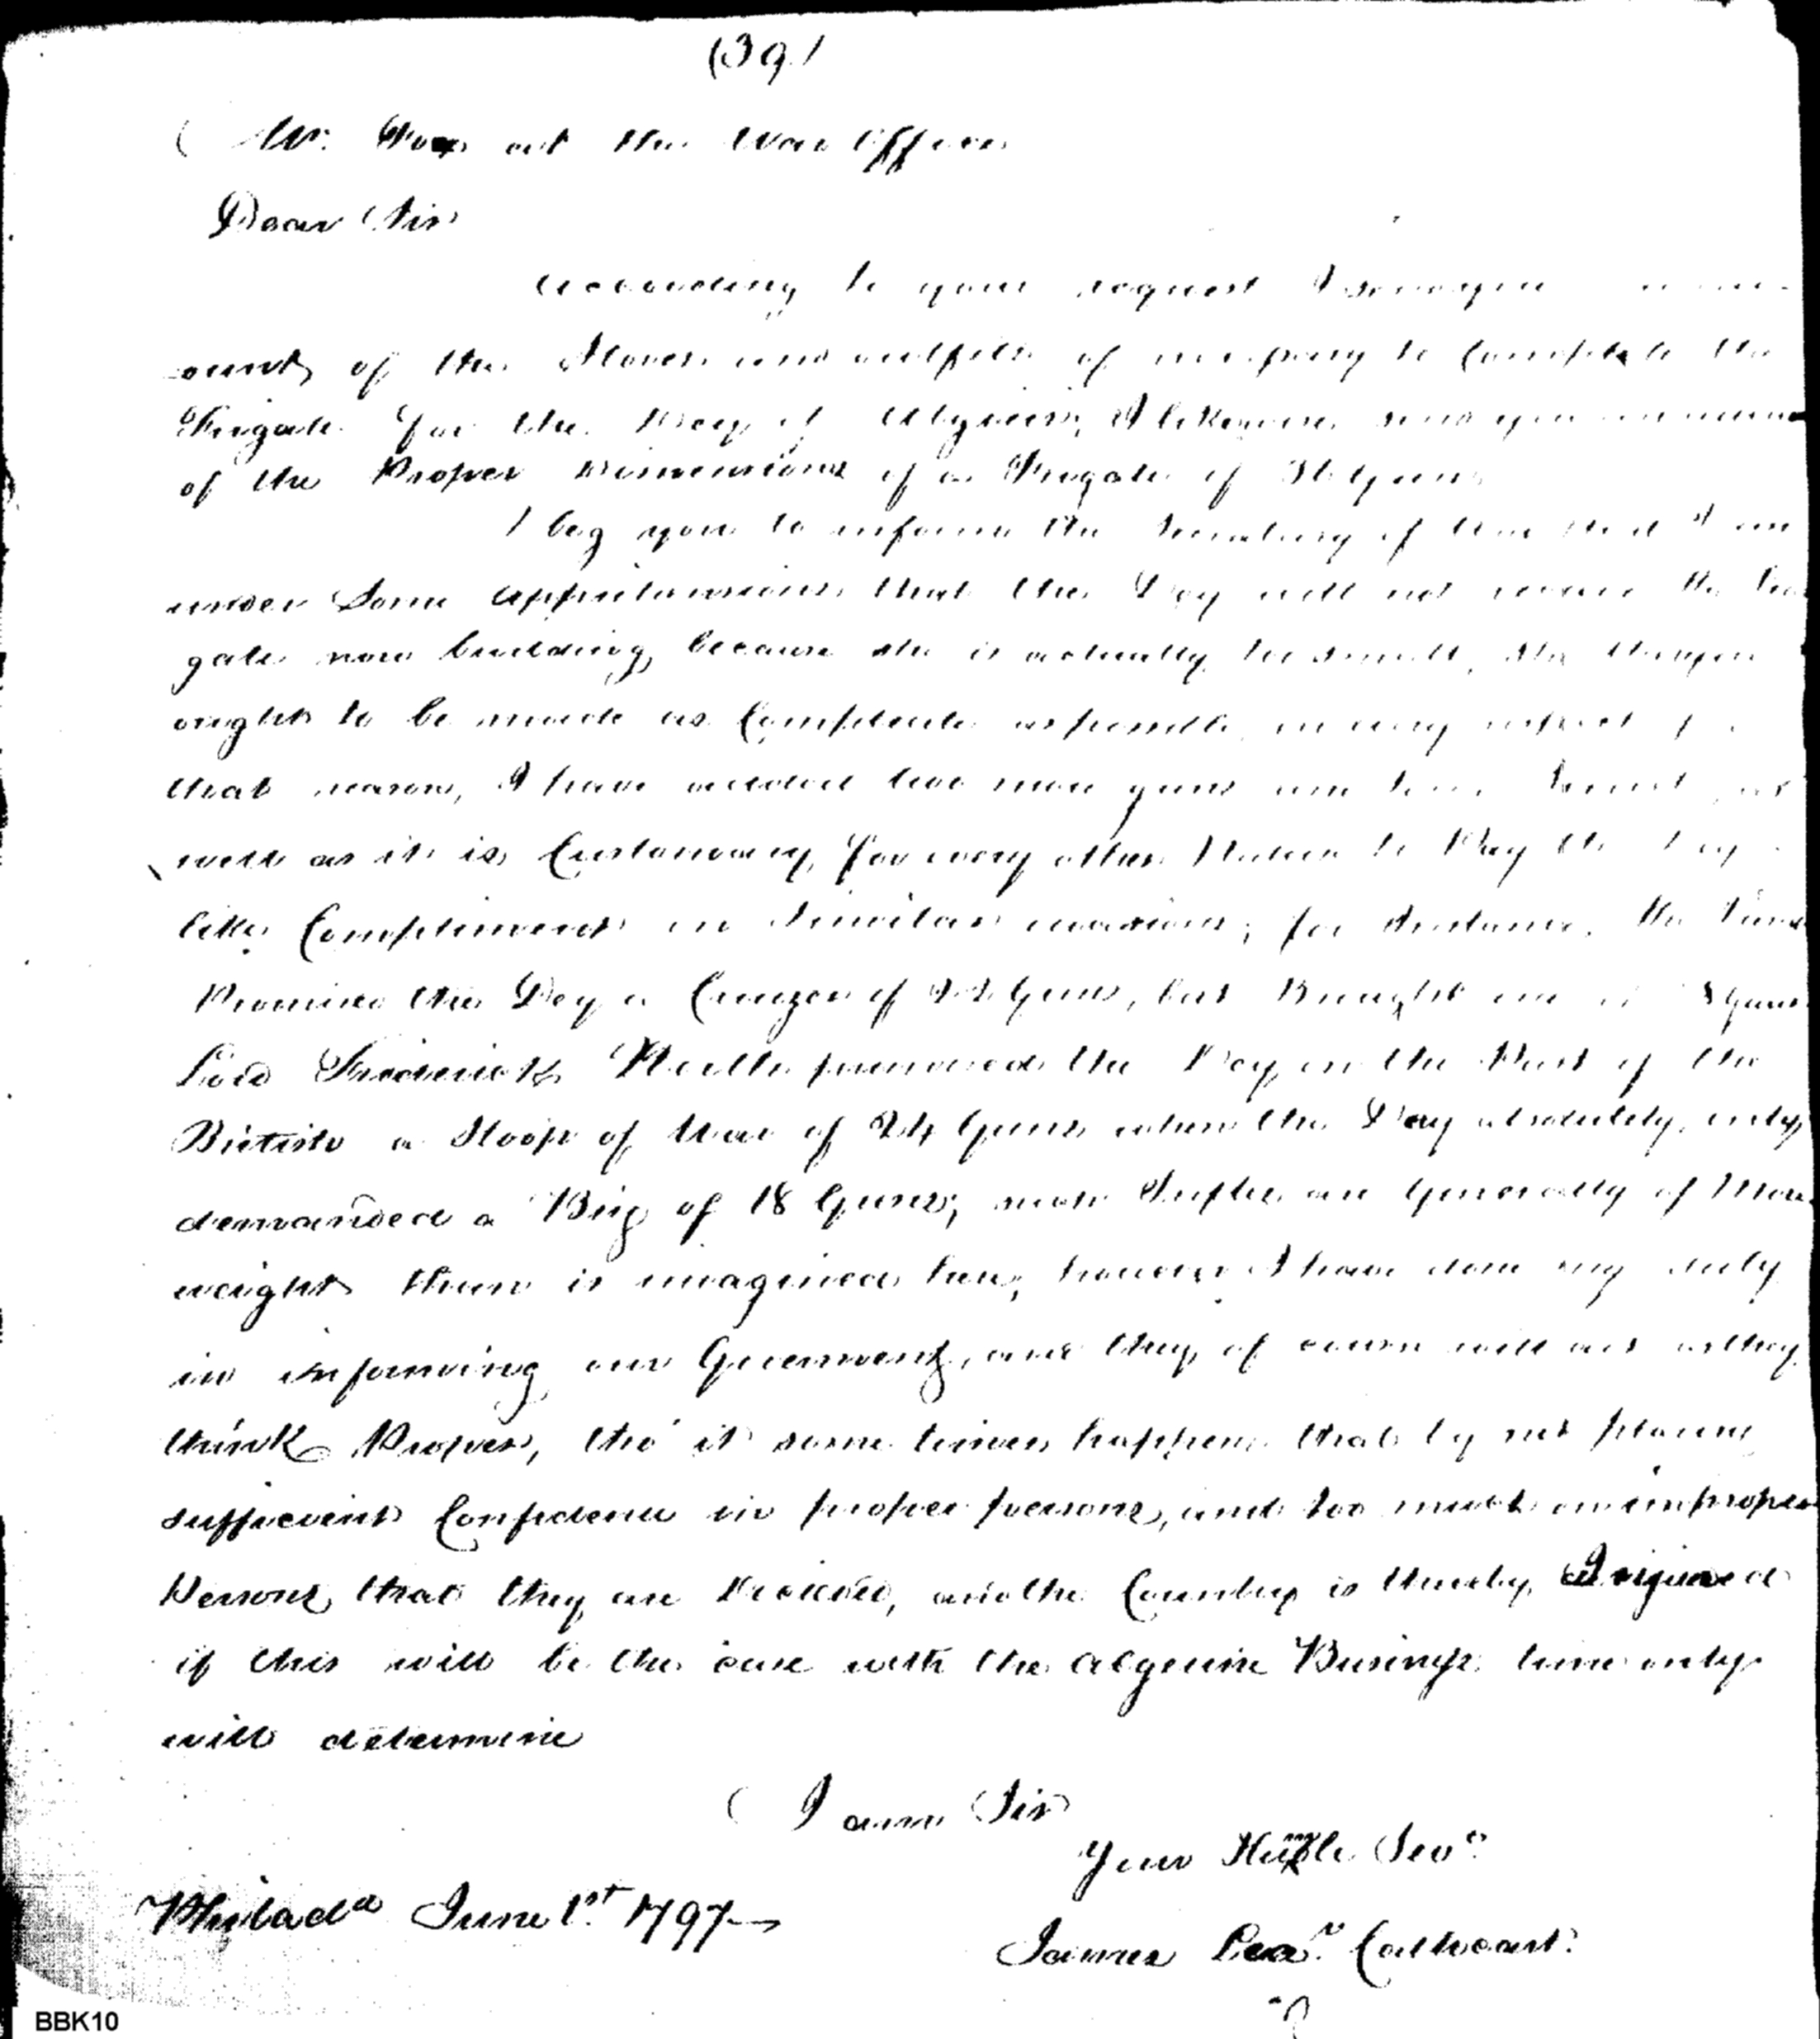 (39)
Mr. Fox at the War Office
Dear Sir
According to your request I send you
ount of the Stores and outfits necessary to Compleat the
Frigate for the Dey of Algiers, I likewise send you
of the Proper Dimensions of a Frigate of 36 Guns
I beg you to inform the Secretary of War that I am
under Some apprehensions that the Dey will not receive the Fri
gate now building, because she is actually too small, she
ought to be made as Compleate as possible in every respect
that reason, I have added two more guns
well as it is Customary for every other Nation to Pay the Dey
like Compliments on Similar occasions; for Instance, the
Promised the Dey a Cruizer of 22 Guns, but Brought Guns
Lord Frederick North promised the Dey on the Part of the
British a Sloop of War of 24 Guns when the Dey absolutely only
demanded a Brig of 18 Guns; such Trifles are Generally of More
weight than is imagined here; however I have done my duty
in informing our Government, and they of course will act as they
think Proper, tho' it some times happens that by not placing
sufficient Confidence in proper persons, and too much in improper
Persons that they are Deceived, and the Country is thereby Injured
if this will be the case with the Algerine Business time only
will determine
I am Sir
Your Huble Sevt
Philada June 1st 1797
James Lear Cathcart
BBK10